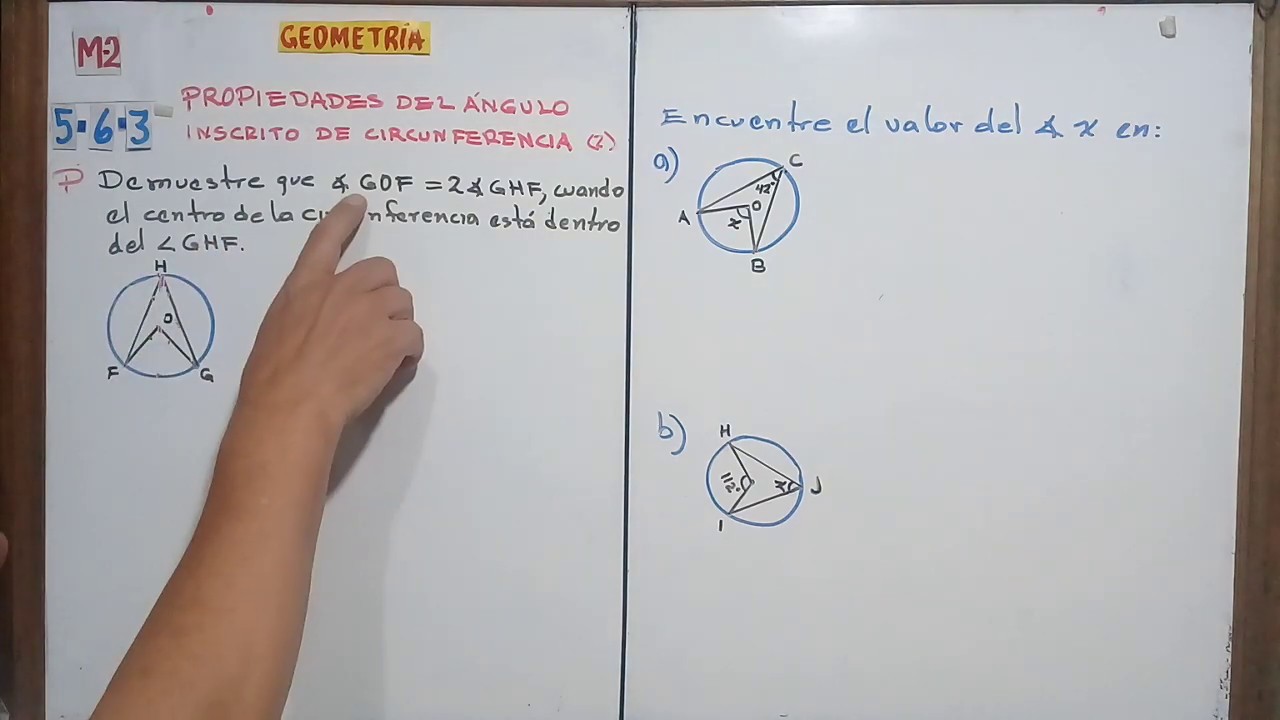 GEOMETRÍA
M-2
5.6.3
PROPIEDADES DEL ÁNGULO
INSCRITO DE CIRCUNFERENCIA (2)
P Demuestre que ∡ GOF = 2∡ GHF, cuando
el centro de la nferencia está dentro
del ∠GHF.
H
O
F G
Encuentre el valor del ∡ x en:
a)
C
42°
O
A
x
B
b)
H
x
J
I